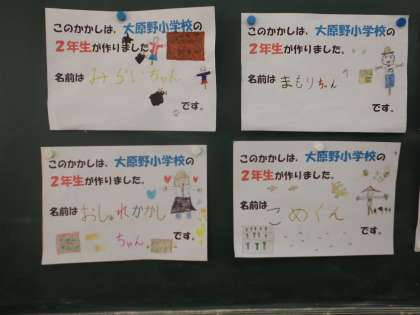 このかかしは、大原野小学校の
2年生が作りました。
名前は みらいちゃん
です。
このかかしは、大原野小学校の
2年生が作りました。
名前は まもりちゃん
です。
このかかしは、大原野小学校の
2年生が作りました。
名前は おしゃれかかし
ちゃん です。
このかかしは、大原野小学校の
2年生が作りました。
名前は こめくん
です。